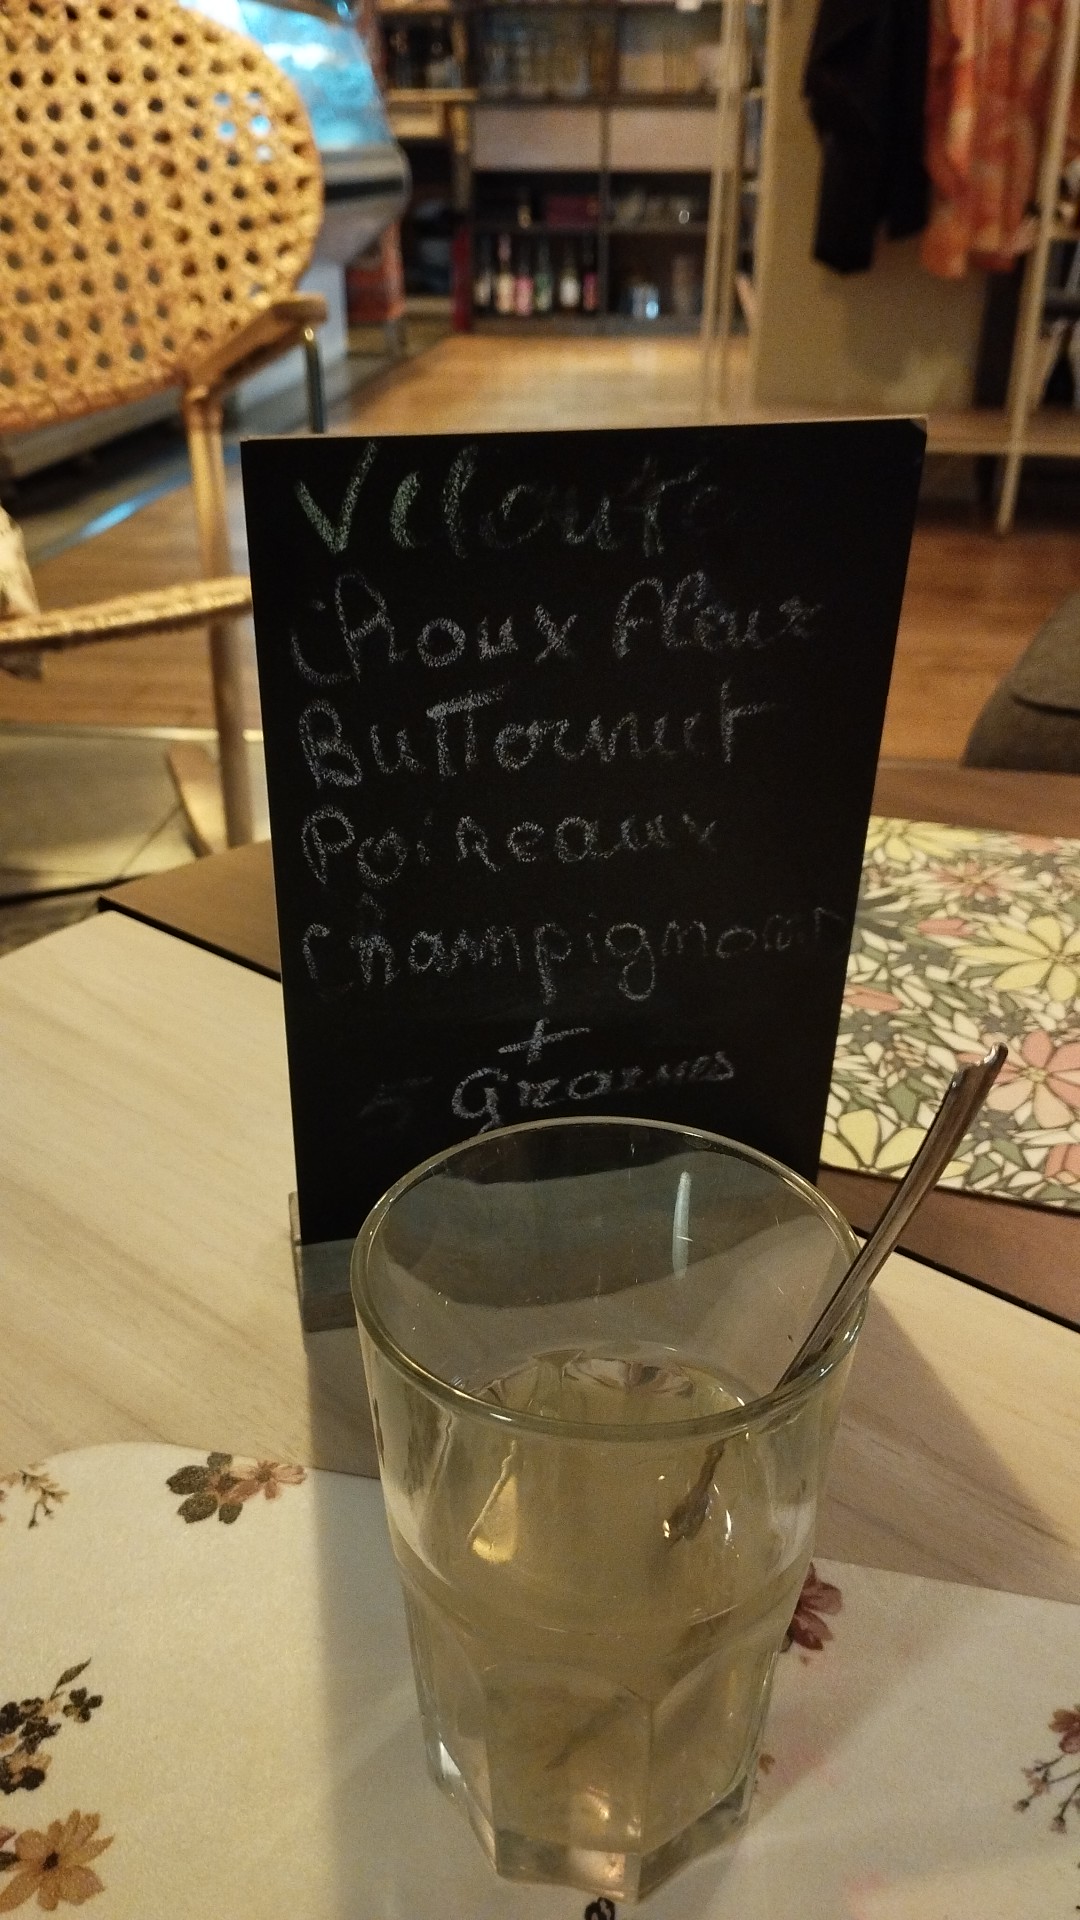 Velouté
Choux fleur
Butternut
Poireaux
Champignons
+
Graines